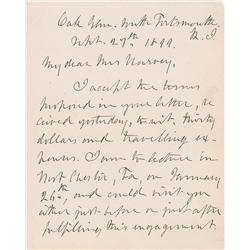 Oak Glen. South Portsmouth,
Sept. 27th 1899. R. I.
My dear Mrs Harvey.
I accept the terms
proposed in your letter, re
ceived yesterday, to wit, thirty
dollars and travelling ex-
penses. I am to lecture in
West Chester, Pa, on January
26th, and could visit you
either just before or just after
fulfilling this engagement.